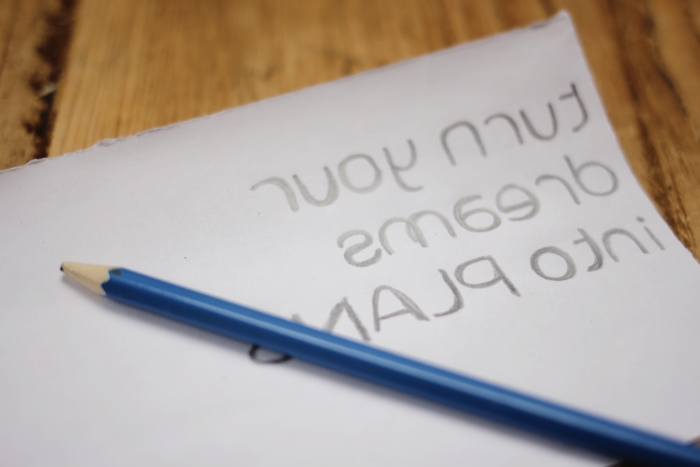 turn your
dreams
into PLAN